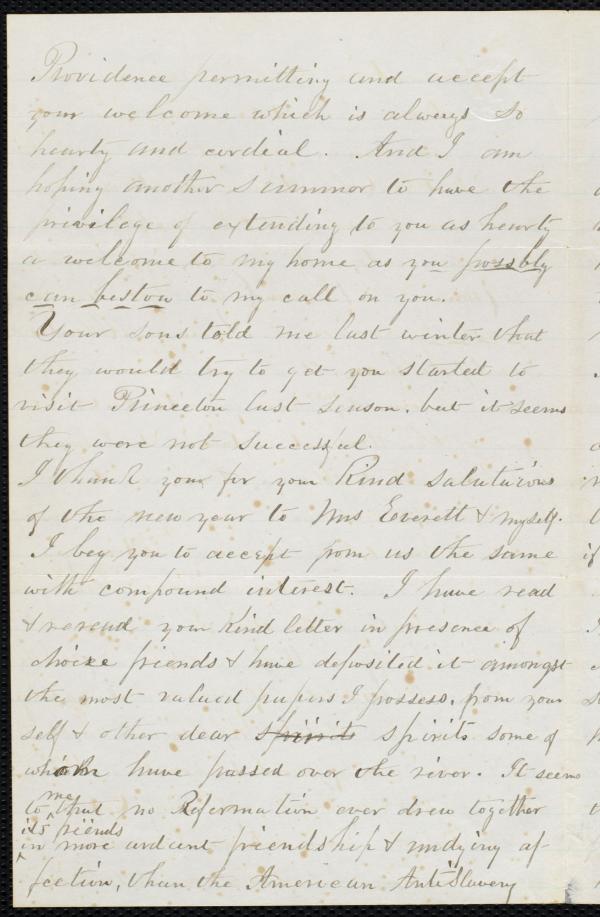 Providence permitting and accept
your welcome which is always so
hearty and cordial. And I am
hoping another summor to have the
privilege of extending to you as hearty
a welcome to my home as you possbly
can bestow to my call on you.
Your sons told me last winter that
they would try to get you started to
visit Princeton last season. but it seems
they were not successful.
I thank you for your kind salutations
of the new year to Mrs Everett & myself.
I beg you to accept from us the same
with compound interest. I have read
& reread your kind letter in presence of
choice friends & have deposited it amongst
the most valued papers I possess, from your
self & other dear spiirits spirits some of
whom have passed over the river. It seems
to me that no Reformation ever drew together
its friends
in more ardent friendship & undying af-
fection, than the American Antislavery